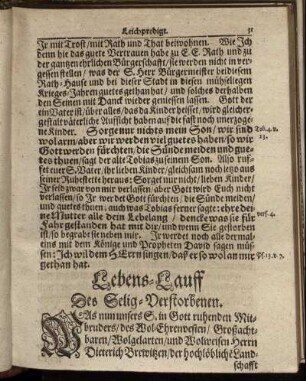 Leichpredigt.
Jr mit Trost/mit Rath und That beiwohnen. Wie Jch
denn hie das guete Vertrauen habe zu E. E. Rath und zu
der gantzen ehrlichen Bürgerschafft/sie werden nicht in ver-
gessen stellen/was der S. Herr Bürgemeister bei diesem
Rath-Hause und bei dieser Stadt in diesen mühseligen
Krieges-Jahren guetes gethan hat/und solches derhalben
den Seinen mit Danck wieder geniessen lassen. Gott der
ein Vater ist/über alles/das da Kinder heisset/wird gleicher-
gestalt väterliche Vorsicht haben auf die fast noch unerzoge-
ne Kinder. Sorge nur nichts mein Son/wir sind
wol arm/aber wir werden viel guetes haben/so wir
Gott werden fürchten/die Sünde meiden und gue-
tes thuen/sagt der alte Tobias zu seinem Son. Also ruf-
fet eur S. Vater/ihr lieben Kinder/gleichsam noch itzo aus
seiner Ruhestette heraus: Sorget nur nicht/lieben Kinder/
Jr seid zwar von mir verlassen/aber Gott wird Euch nicht
verlassen/so Jr werdet Gott fürchten/die Sünde meiden/
und guetes thuen; auch was Tobias ferner sagte: ehre dei-
ne Mutter alle dein Lebelang/dencke was sie für
Fahr gestanden hat mit dir/und wenn sie gestorben
ist/so begrabe sie neben mir. Jr werdet noch alle derma-
leins mit dem Könige und Propheten David sagen müs-
sen: Jch wil dem HErrn singen/daß er so wol an mir
gethan hat.
Tob. 4. v.
23.
vers. 4.
Ps. 13. v. 7.
Lebens-Lauff
Des Selig-Verstorbenen.
WAs nun unsers S. in Gott ruhenden Mit-
bruders/des Wol-Ehrenvesten/Großacht-
baren/Wolgelarten/und Wolweisen Herrn
Dieterich Brewitzen/der hochlöbliche Land-
schafft